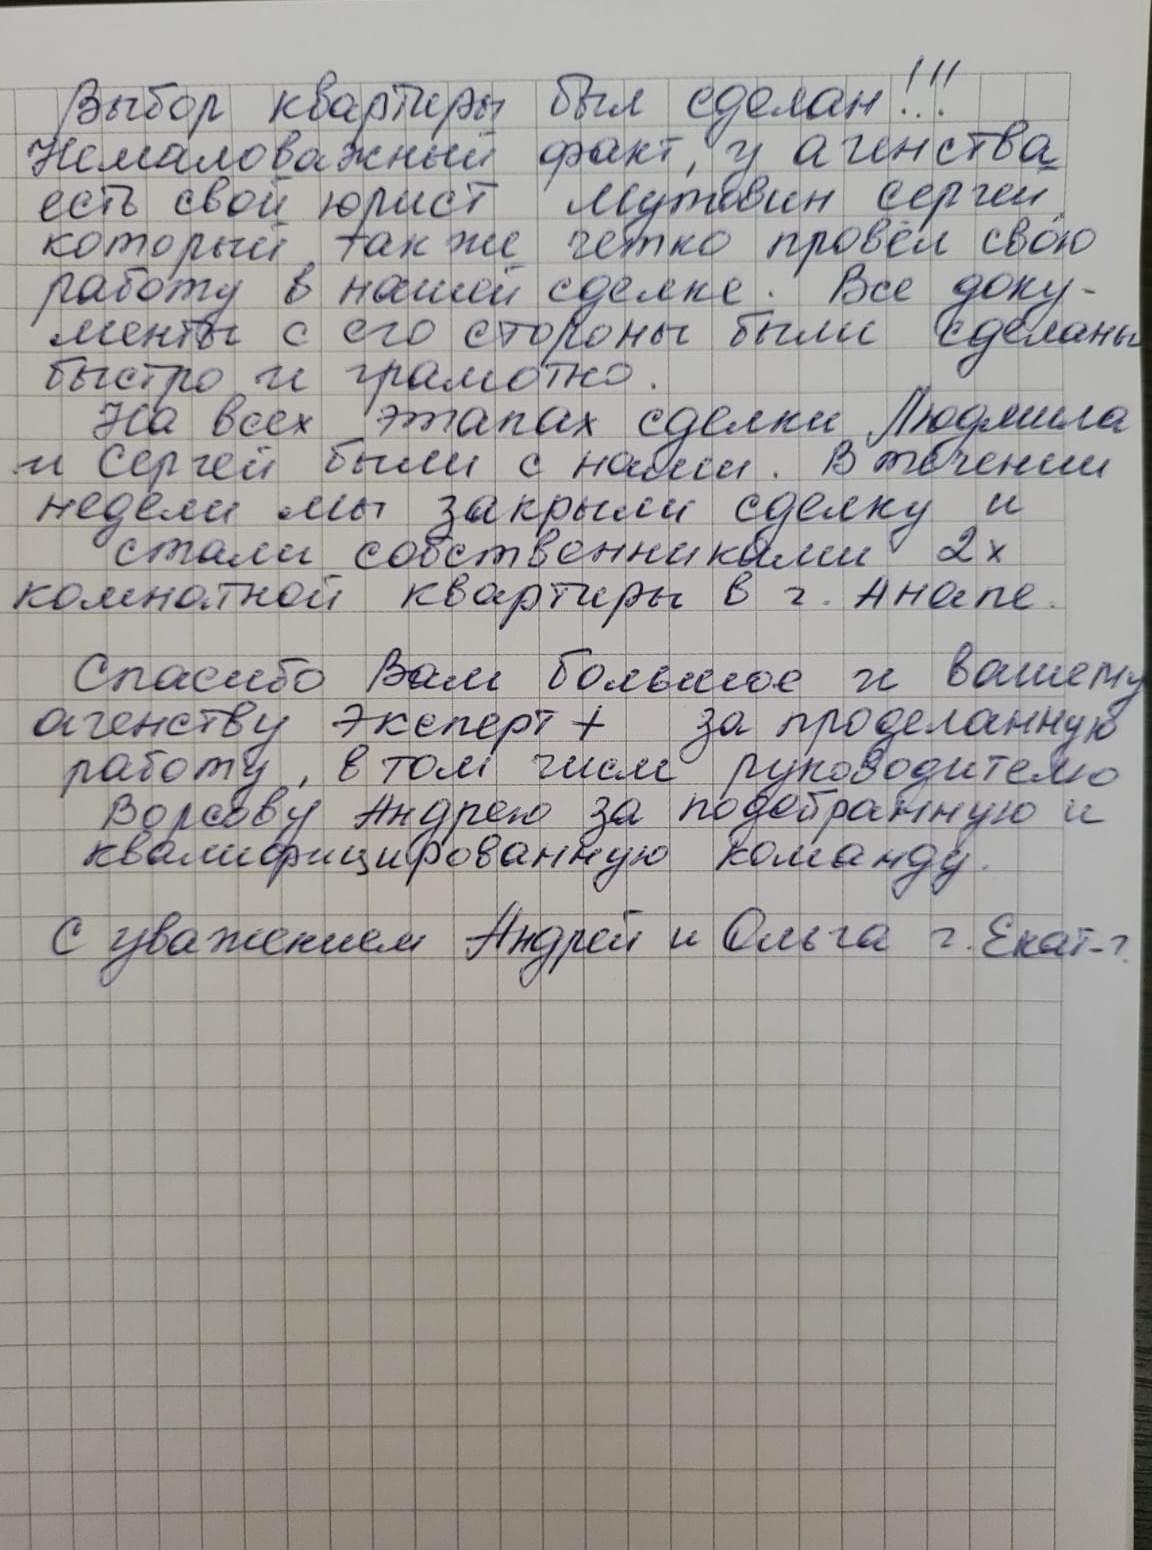 Выбор квартиры был сделан!!!
Немаловажный факт, у агенства
есть свой юрист Мутовин Сергей,
который также чётко провёл свою
работу в нашей сделке. Все доку-
менты с его стороны были сделаны
быстро и грамотно.
На всех этапах сделки Людмила
и Сергей были с нами. В течении
недели мы закрыли сделку и
стали собственниками 2х
комнатной квартиры в г. Анапе.
Спасибо Вам большое и вашему
агенству Эксперт+ за проделанную
работу, в том числе руководителю
Андрею за подобранную и
квалифицированную команду.
С уважением Андрей и Ольга г. Екат-г.